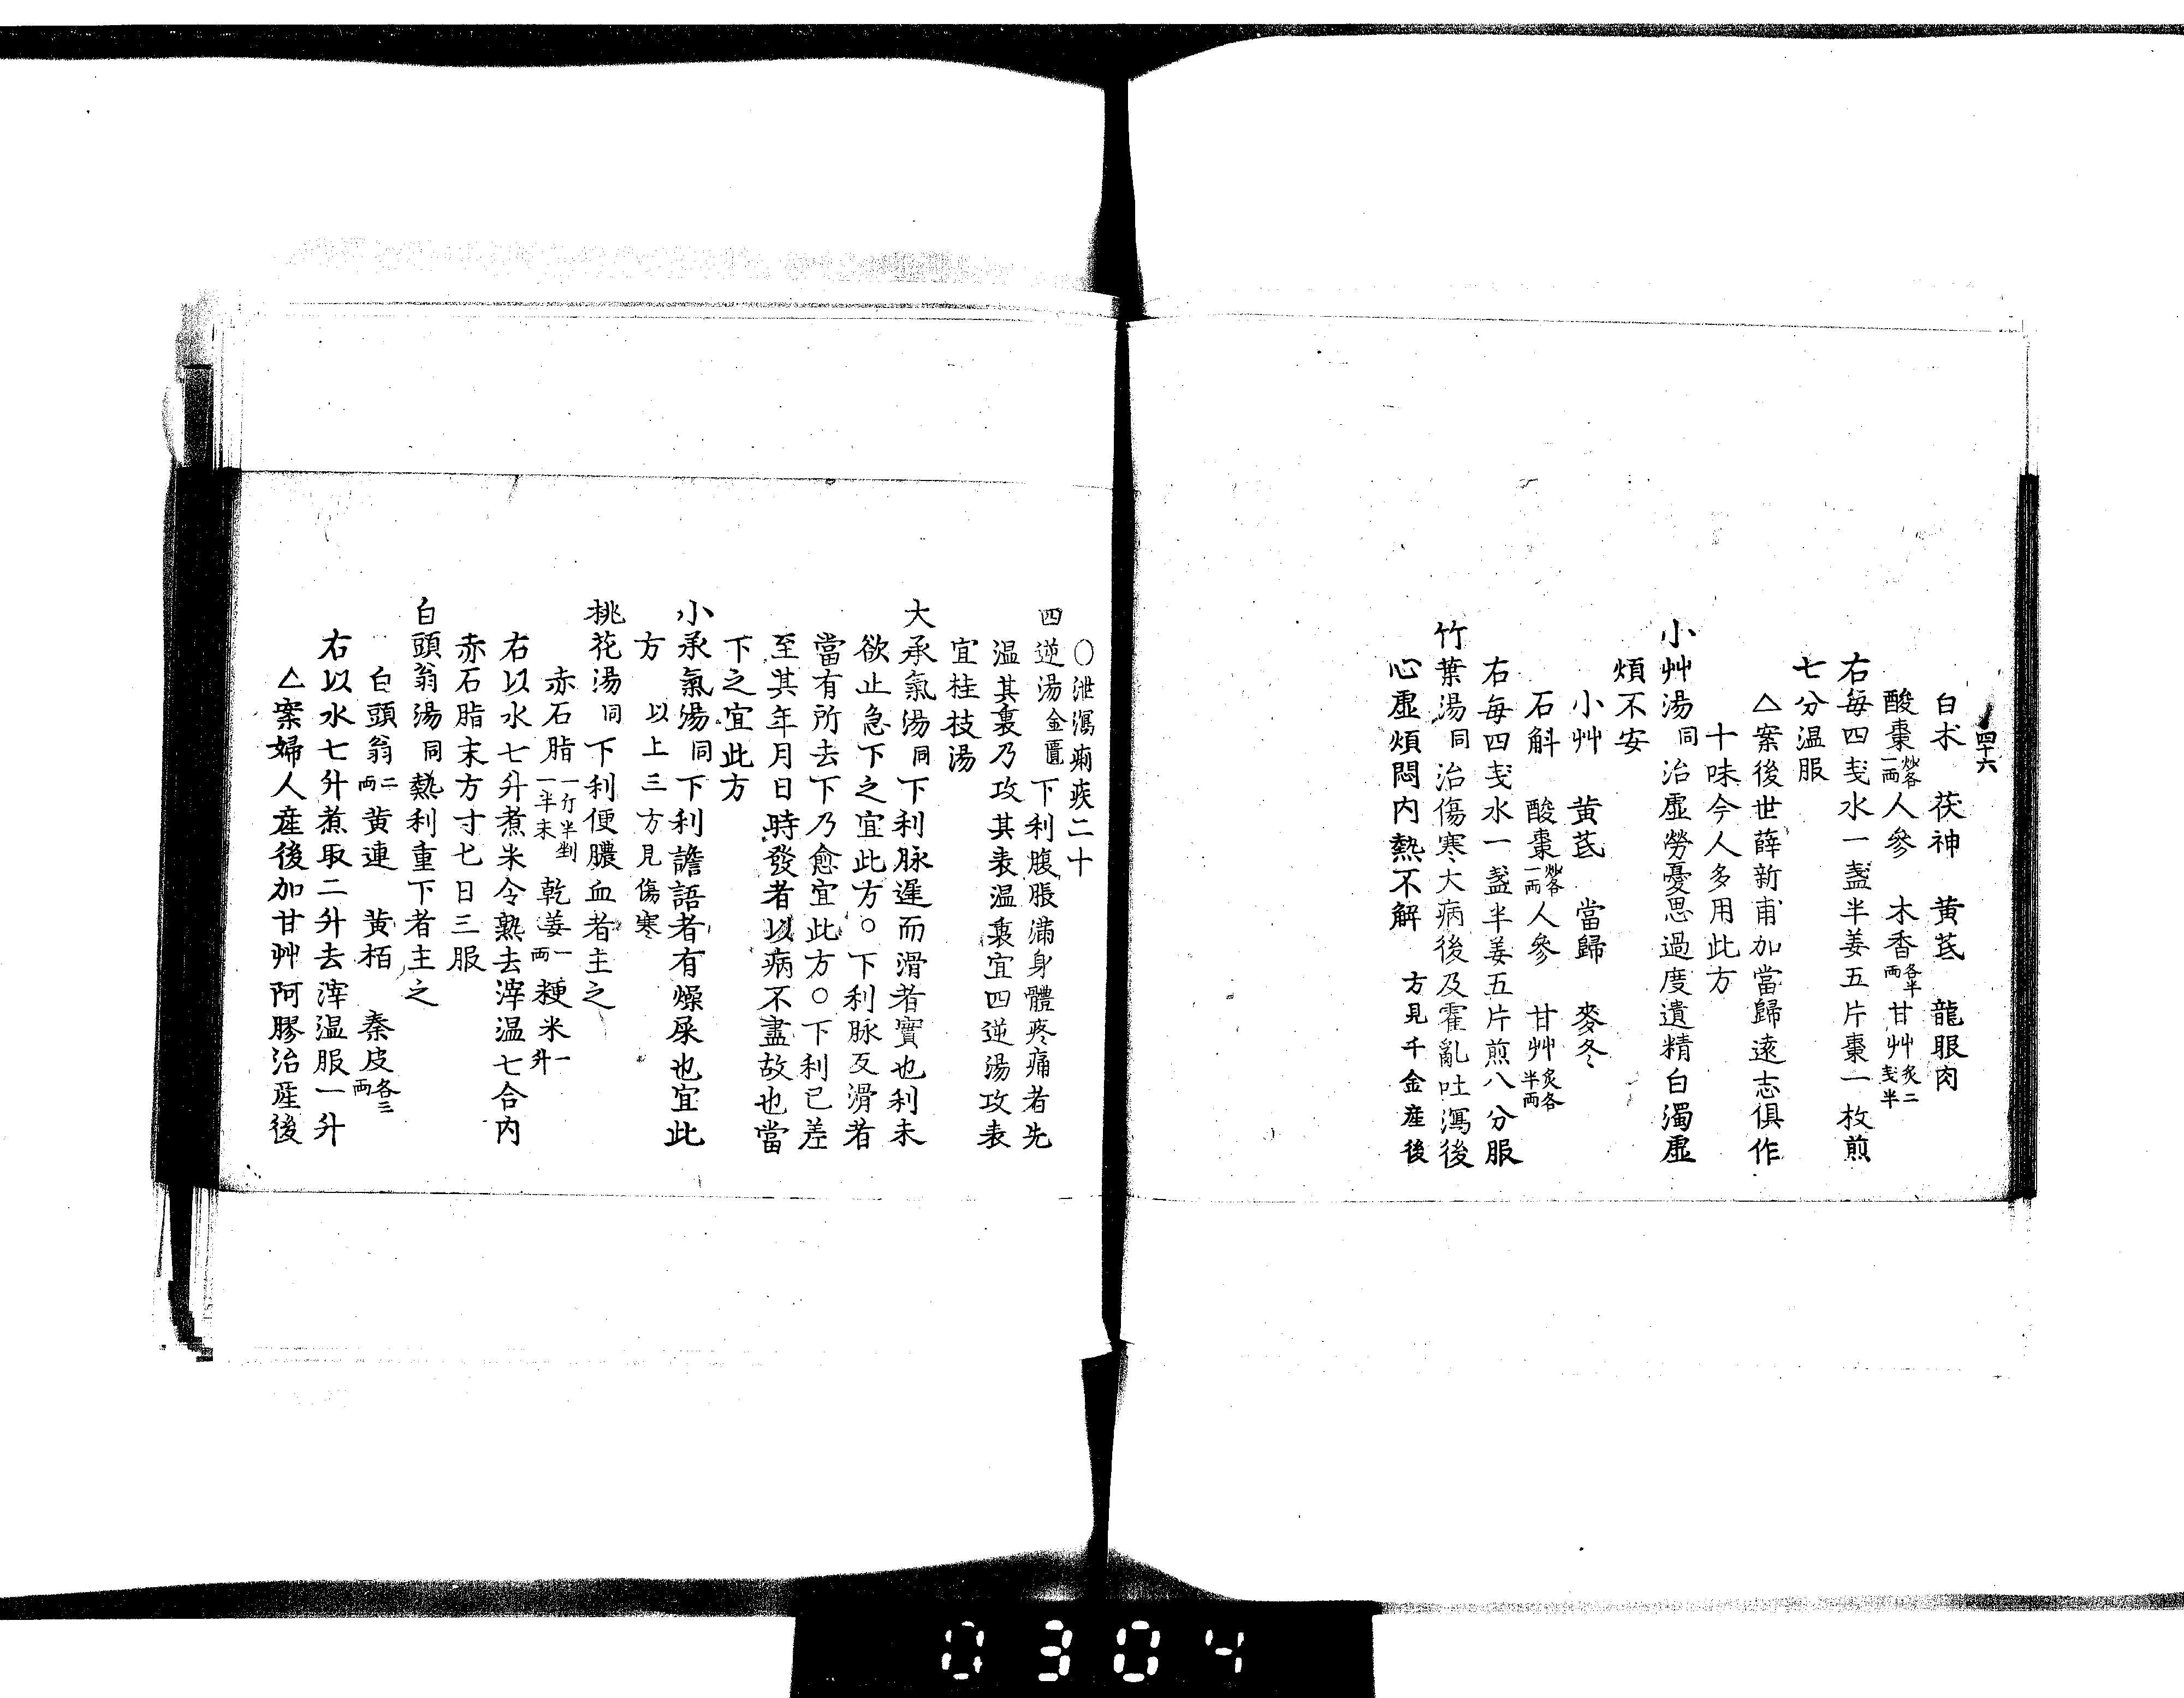 四十六
白朮　茯神　黃芪　龍眼肉
酸棗炒各一両人參　木香各半両甘艸炙二戔半
右毎四戔水一盞半姜五片棗一枚煎
七分温服
△案後世薛新甫加當歸遠志俱作
十味今人多用此方
小艸湯同治虛勞憂思過度遺精白濁虛
煩不安
小艸　黃芪　當歸　麥冬
石斛　酸棗炒各一両人參　甘艸炙各半両
右毎四戔水一盞半姜五片煎八分服
竹葉湯同治傷寒大病後及霍亂吐瀉後
心虛煩悶内熱不解　方見千金産後
〇泄瀉痢疾二十
四逆湯金匱下利腹脹滿身體疼痛者先
温其裏乃攻其表温裏宜四逆湯攻表
宜桂枝湯
大承氣湯同下利脉遲而滑者實也利未
欲止急下之宜此方〇下利脉反滑者
當有所去下乃愈宜此方〇下利已差
至其年月日時發者以病不盡故也當
下之宜此方
小承氣湯同下利譫語者有燥屎也宜此
方　以上三方見傷寒
桃花湯同下利便膿血者主之
赤石脂一斤半剉一半末乾姜一両粳米一升
右以水七升煮米令熟去滓温七合内
赤石脂末方寸七日三服
白頭翁湯同熱利重下者主之
白頭翁二両黃連　黃栢　秦皮各三両
右以水七升煮取二升去滓温服一升
△案婦人産後加甘艸阿膠治産後
0304